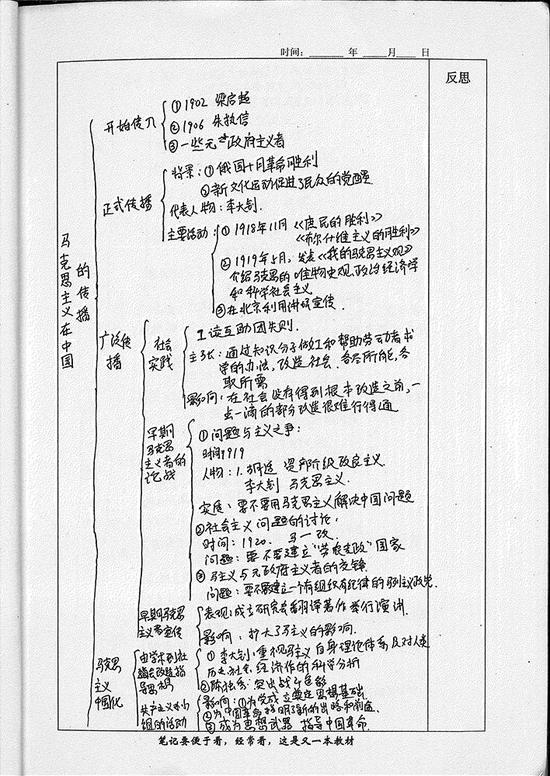 时间：____年____月____日
反思
马克思主义在中国的传播
开始传入
①1902 梁启超
②1906 朱执信
③一些无政府主义者
正式传播
背景：①俄国十月革命胜利
②新文化运动促进了民众的觉醒
代表人物：李大钊.
主要活动：①1918年11月《庶民的胜利》
《布尔什维主义的胜利》
②1919年5月，发表《我的马克思主义观》
介绍马克思的唯物史观、政治经济学
和科学社会主义
③在北京利用讲坛宣传.
广泛传播
社会实践
工读互助团失则.
主张：通过知识分子做工和帮助劳动者求
学的办法，改造社会. 各尽所能，各
取所需
影响：在社会没有得到根本改造之前，一
点一滴的部分改造很难行得通
早期马克思主义者的论战
①问题与主义之争：
时间1919
人物：1.胡适 资产阶级改良主义.
李大钊 马克思主义.
实质：要不要用马克思主义解决中国问题
②社会主义问题的讨论：
时间：1920. 马一改.
问题：要不要建立“劳农专政”国家
③马主义与无政府主义者的交锋
问题：要不要建立一个有组织有纪律的马列主义政党.
早期马克思主义者宣传
表现：成立研究会翻译著作举行演讲.
影响：扩大了马主义的影响.
马克思主义中国化
由学术到社
指导思想
共产主义小组的活动
①李大钊：重视马主义自身理论体系及对人类
历史社会经济作的科学分析
②陈独秀：突出战斗色彩
影响：①为党成立奠定思想基础
②为中国革命指明了新的出路和前途
③成为思想武器 指导中国革命.
笔记要便于看，经常看，这是又一本教材